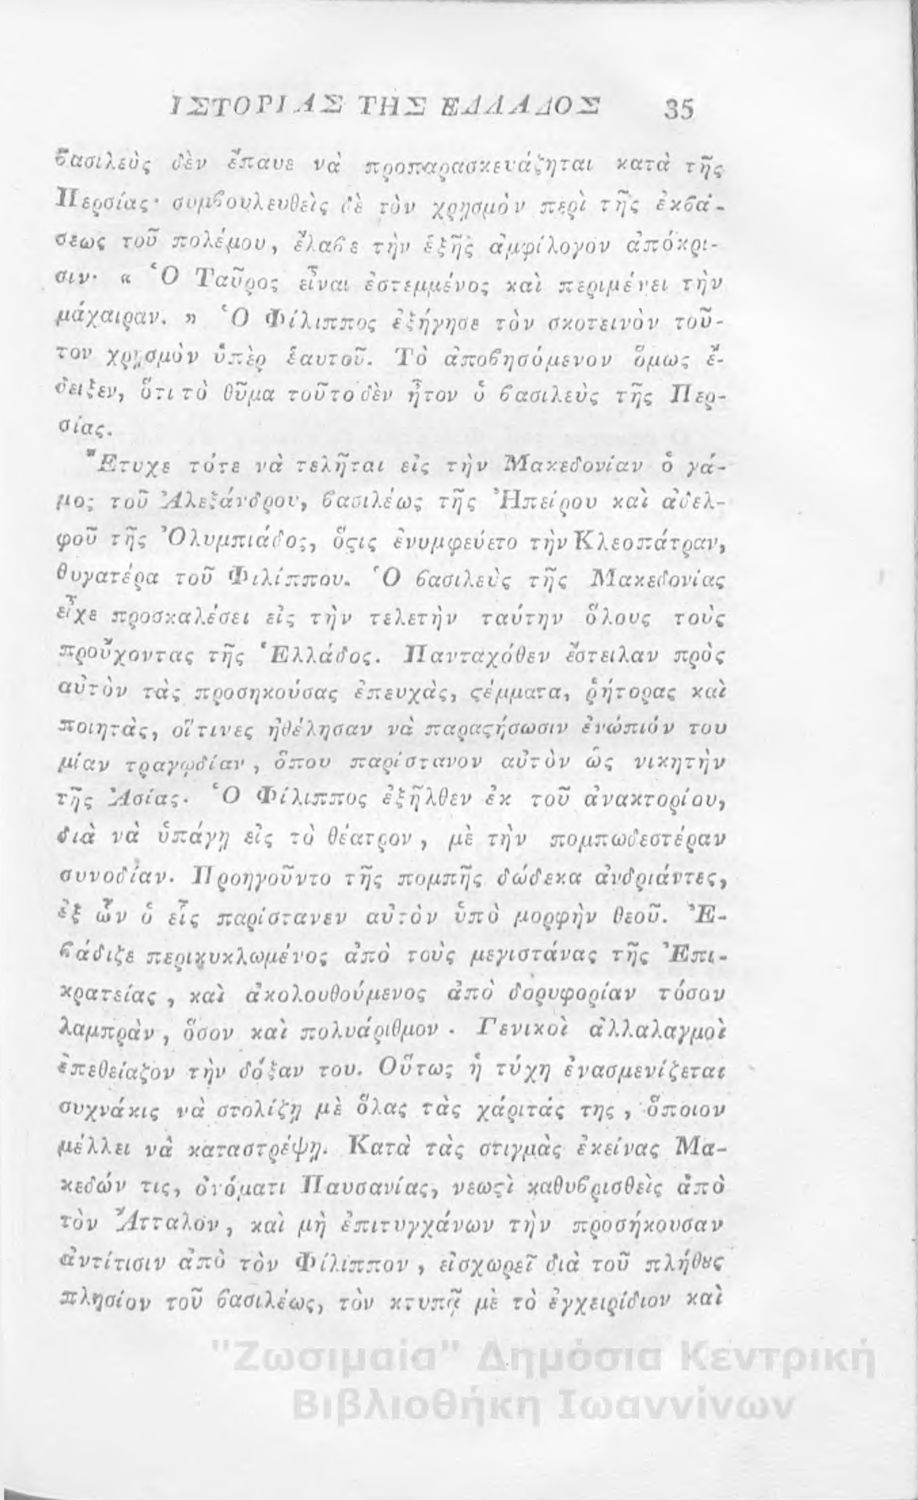 ΙΣΤΟΡΙΑΣ ΤΗΣ ΕΛΛΑΔΟΣ 35
ϐασιλεὺς δὲν ἔπαυε νὰ προπαρασκευάζηται κατὰ τῆς
Περσίας· συμϐουλευθεὶς δὲ τὸν χρησμὸν περὶ τῆς ἐκϐά-
σεως τοῦ πολέμου, ἔλαϐε τὴν ἑξῆς ἀμφίλογον ἀπόκρι-
σιν· « Ὁ Ταῦρος εἶναι ἐστεμμένος καὶ περιμένει τὴν
μάχαιραν. » Ὁ Φίλιππος ἐξήγησε τὸν σκοτεινὸν τοῦ-
τον χρησμὸν ὑπὲρ ἑαυτοῦ. Τὸ ἀποϐησόμενον ὅμως ἔ-
δειξεν, ὅτι τὸ θῦμα τοῦτο δὲν ἦτον ὁ ϐασιλεὺς τῆς Περ-
σίας.
Ἔτυχε τότε νὰ τελῆται εἰς τὴν Μακεδονίαν ὁ γά-
μος τοῦ Ἀλεξάνδρου, ϐασιλέως τῆς Ἠπείρου καὶ ἀδελ-
φοῦ τῆς Ὀλυμπιάδος, ὅςις ἐνυμφεύετο τὴν Κλεοπάτραν,
θυγατέρα τοῦ Φιλίππου. Ὁ ϐασιλεὺς τῆς Μακεδονίας
εἶχε προσκαλέσει εἰς τὴν τελετὴν ταύτην ὅλους τοὺς
προὔχοντας τῆς Ἑλλάδος. Πανταχόθεν ἔστειλαν πρὸς
αὐτὸν τὰς προσηκούσας ἐπευχὰς, ςέμματα, ῥήτορας καὶ
ποιητὰς, οἵτινες ἠθέλησαν νὰ παραςήσωσιν ἐνώπιόν του
μίαν τραγῳδίαν, ὅπου παρίστανον αὐτὸν ὡς νικητὴν
τῆς Ἀσίας. Ὁ Φίλιππος ἐξῆλθεν ἐκ τοῦ ἀνακτορίου,
διὰ νὰ ὑπάγῃ εἰς τὸ θέατρον, μὲ τὴν πομπωδεστέραν
συνοδίαν. Προηγοῦντο τῆς πομπῆς δώδεκα ἀνδριάντες,
ἐξ ὧν ὁ εἷς παρίστανεν αὐτὸν ὑπὸ μορφὴν θεοῦ. Ἐ-
ϐάδιζε περικυκλωμένος ἀπὸ τοὺς μεγιστάνας τῆς Ἐπι-
κρατείας, καὶ ἀκολουθούμενος ἀπὸ δορυφορίαν τόσον
λαμπρὰν, ὅσον καὶ πολυάριθμον. Γενικοὶ ἀλλαλαγμοὶ
ἐπεθείαζον τὴν δόξαν του. Οὕτως ἡ τύχη ἐνασμενίζεται
συχνάκις νὰ στολίζῃ μὲ ὅλας τὰς χάριτάς της, ὅποιον
μέλλει νὰ καταστρέψῃ. Κατὰ τὰς στιγμὰς ἐκείνας Μα-
κεδών τις, ὀνόματι Παυσανίας, νεωςὶ καθυϐρισθεὶς ἀπὸ
τὸν Ἄτταλον, καὶ μὴ ἐπιτυγχάνων τὴν προσήκουσαν
ἀντίτισιν ἀπὸ τὸν Φίλιππον, εἰσχωρεῖ διὰ τοῦ πλήθȣς
πλησίον τοῦ ϐασιλέως, τὸν κτυπᾷ μὲ τὸ ἐγχειρίδιον καὶ
"Ζωσιμαία" Δημόσια Κεντρική
Βιβλιοθήκη Ιωαννίνων